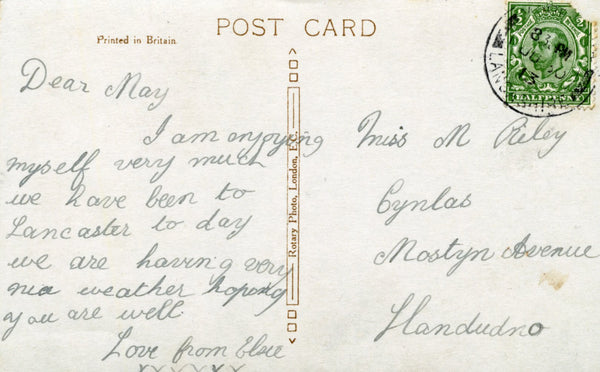 POST CARD
Printed in Britain.
Dear May
I am enjoying
myself very much
we have been to
Lancaster to day
we are having very
nice weather hoping
you are well
Love from Elsie
XXXXXX
Rotary Photo, London, E.C.
Miss M Riley
Cynlas
Mostyn Avenue
Llandudno
HALFPENNY